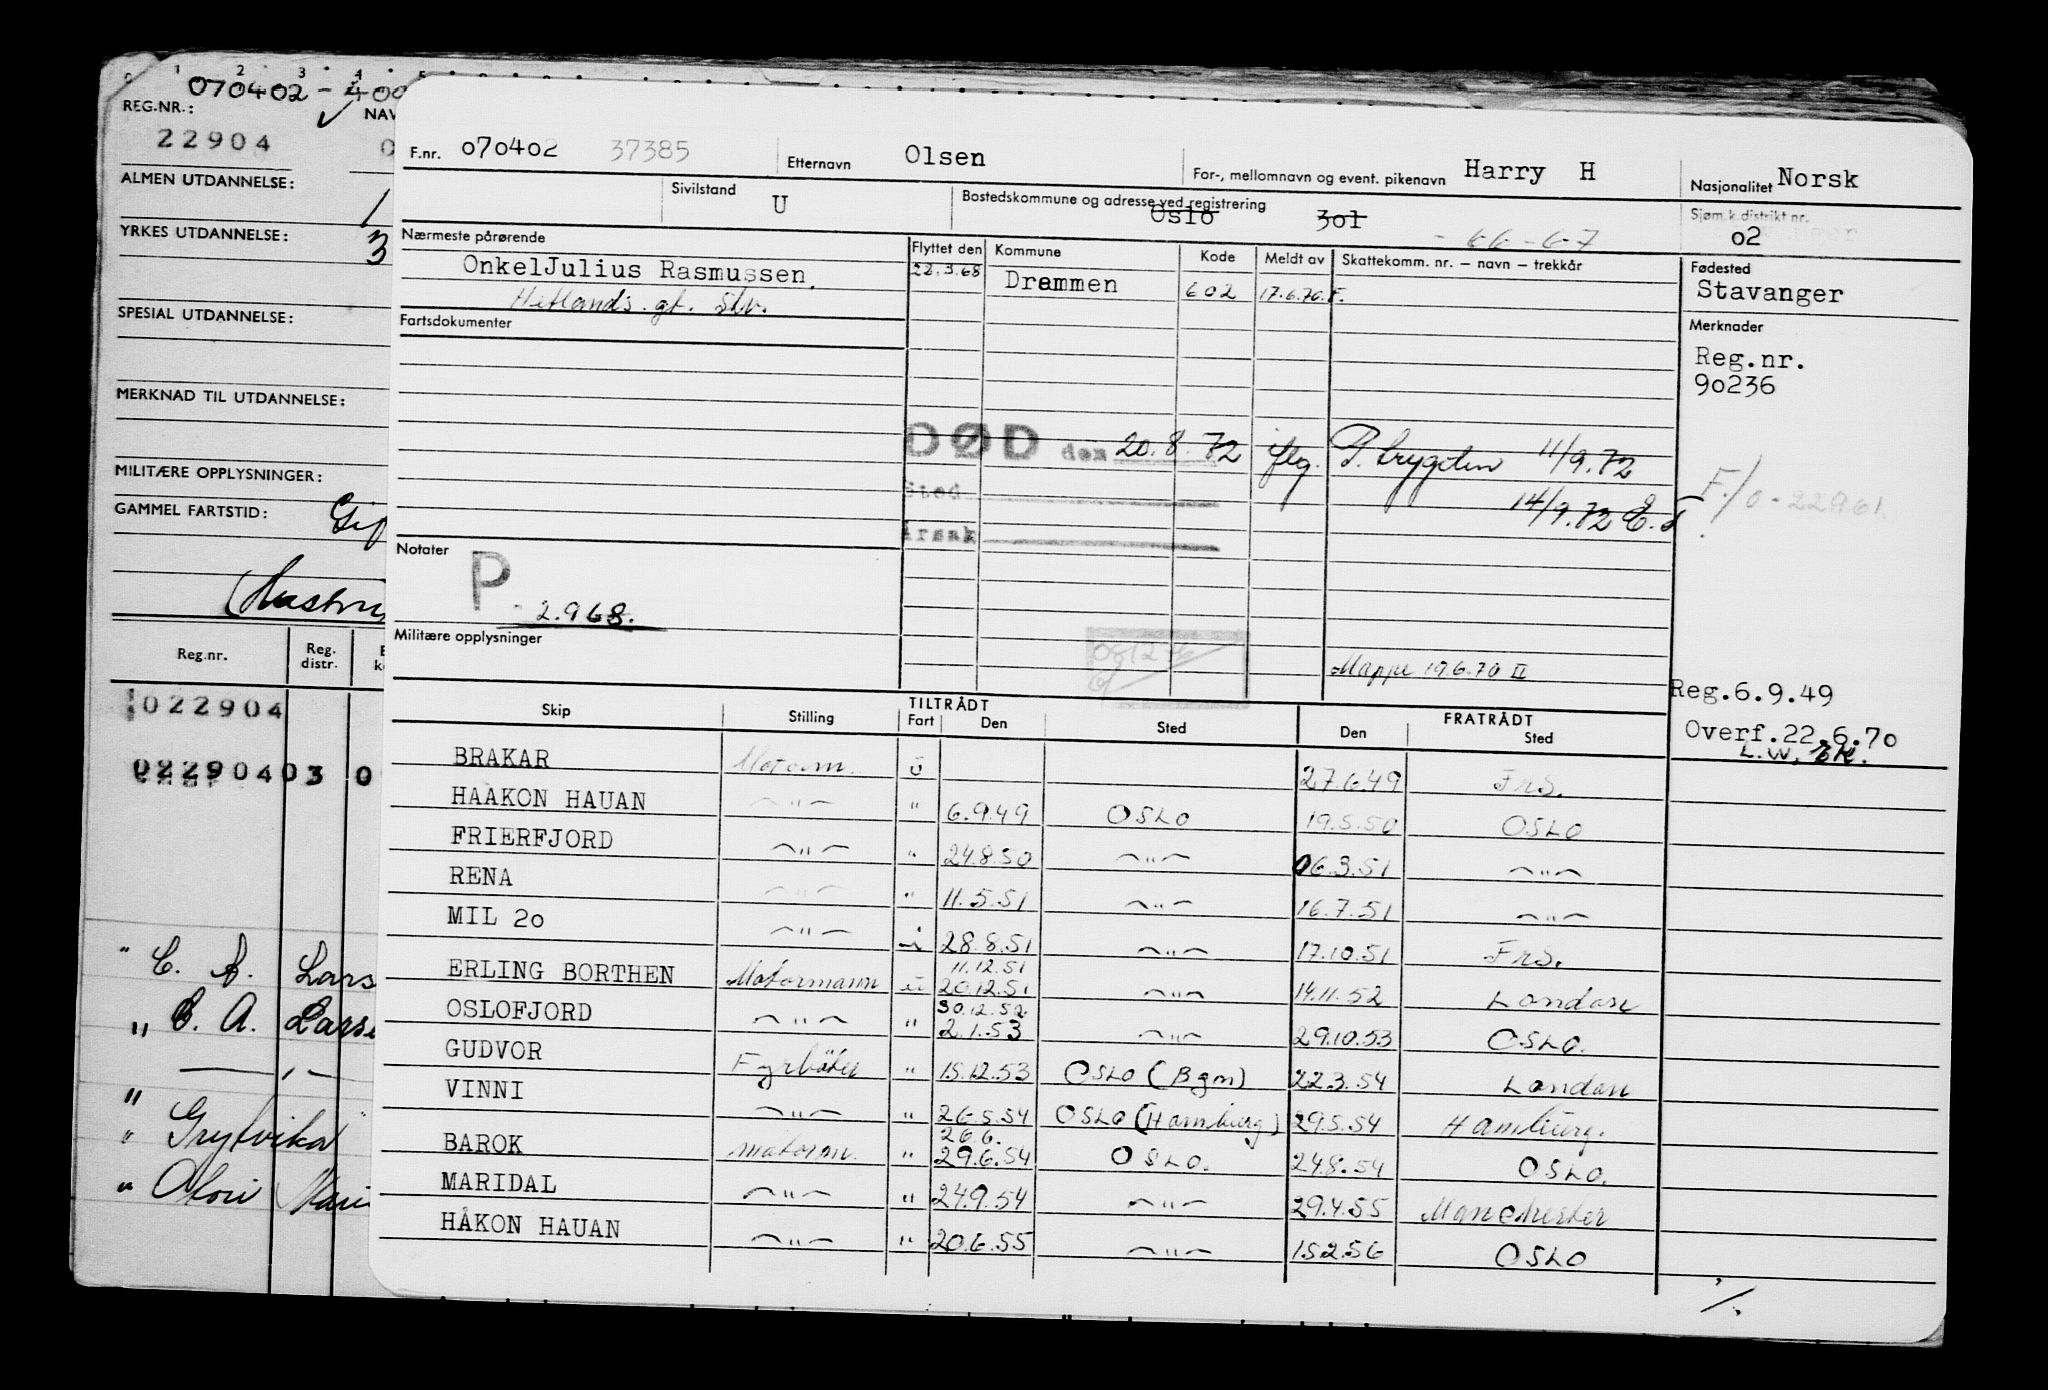 0 1 2 3 4 5
070402 - 400
REG.NR.:
NAV
22904
ALMEN UTDANNELSE:
1
YRKES UTDANNELSE:
3
SPESIAL UTDANNELSE:
MERKNAD TIL UTDANNELSE:
MILITÆRE OPPLYSNINGER:
GAMMEL FARTSTID:
Reg.nr. Reg. distr.
022904
022904 03 0
" C. A. Lars
" C. A. Larse
"
" Grytvika
" Thori Mari
F.nr. 070402 37385 Etternavn Olsen For-, mellomnavn og event. pikenavn Harry H Nasjonalitet Norsk
Sivilstand U Bostedskommune og adresse ved registrering Oslo 301 - 66-67 Sjøm.k.distrikt nr. 02
Nærmeste pårørende Flyttet den Kommune Kode Meldt av Skattekomm. nr. – navn – trekkår Fødested
OnkelJulius Rasmussen. 22.3.68 Drammen 602 17.6.70.F. Stavanger
Hetlands. gt. Stv.
Fartsdokumenter Merknader
Reg.nr.
90236
DØD den 20.8.72 iflg. P. trygden 11/9.72
Sted F./0-22961
14/9.72 E.S
Årsak
Notater
P
2.968.
Militære opplysninger
Mappe 19.6.70 II
Reg.6.9.49
Overf.22.6.70
L.W.
TILTRÅDT FRATRÅDT
Skip Stilling Fart Den Sted Den Sted
BRAKAR Motorm. U 27.6.49 Frs.
HAAKON HAUAN –"– " 6.9.49 OSLO 19.5.50 OSLO
FRIERFJORD –"– " 24.8.50 –"– 06.3.51 –"–
RENA –"– " 11.5.51 –"– 16.7.51 –"–
MIL 20 –"– i 28.8.51 –"– 17.10.51 Frs.
11.12.51
ERLING BORTHEN Motormann u 20.12.51 –"– 14.11.52 London
30.12.52
OSLOFJORD –"– " 2.1.53 –"– 29.10.53 OSLO.
GUDVOR Fyrbøter " 15.12.53 OSLO (Bgn) 22.3.54 London
VINNI –"– " 26.5.54 OSLO (Hamburg) 29.5.54 Hamburg.
26.6.
BAROK motorm. " 29.6.54 OSLO. 24.8.54 OSLO.
MARIDAL –"– " 24.9.54 –"– 29.4.55 Manchester
HÅKON HAUAN –"– " 20.6.55 –"– 15.2.56 OSLO
./.